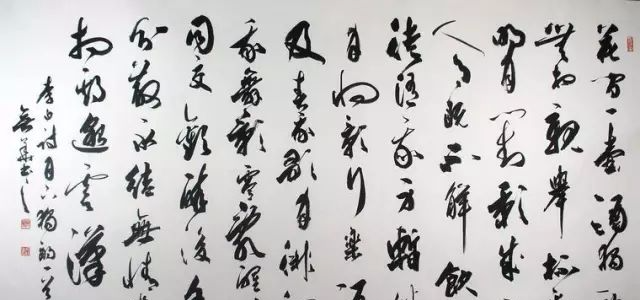 花間一壺酒獨
無相親舉杯
明月對影成
人月既不解飲
徒隨我身暫
月將影行樂須
及春我歌月徘
我舞影零亂醒
同交歡醉後各
分散永結無情
相期邈雲漢
李白詩月下獨酌一首